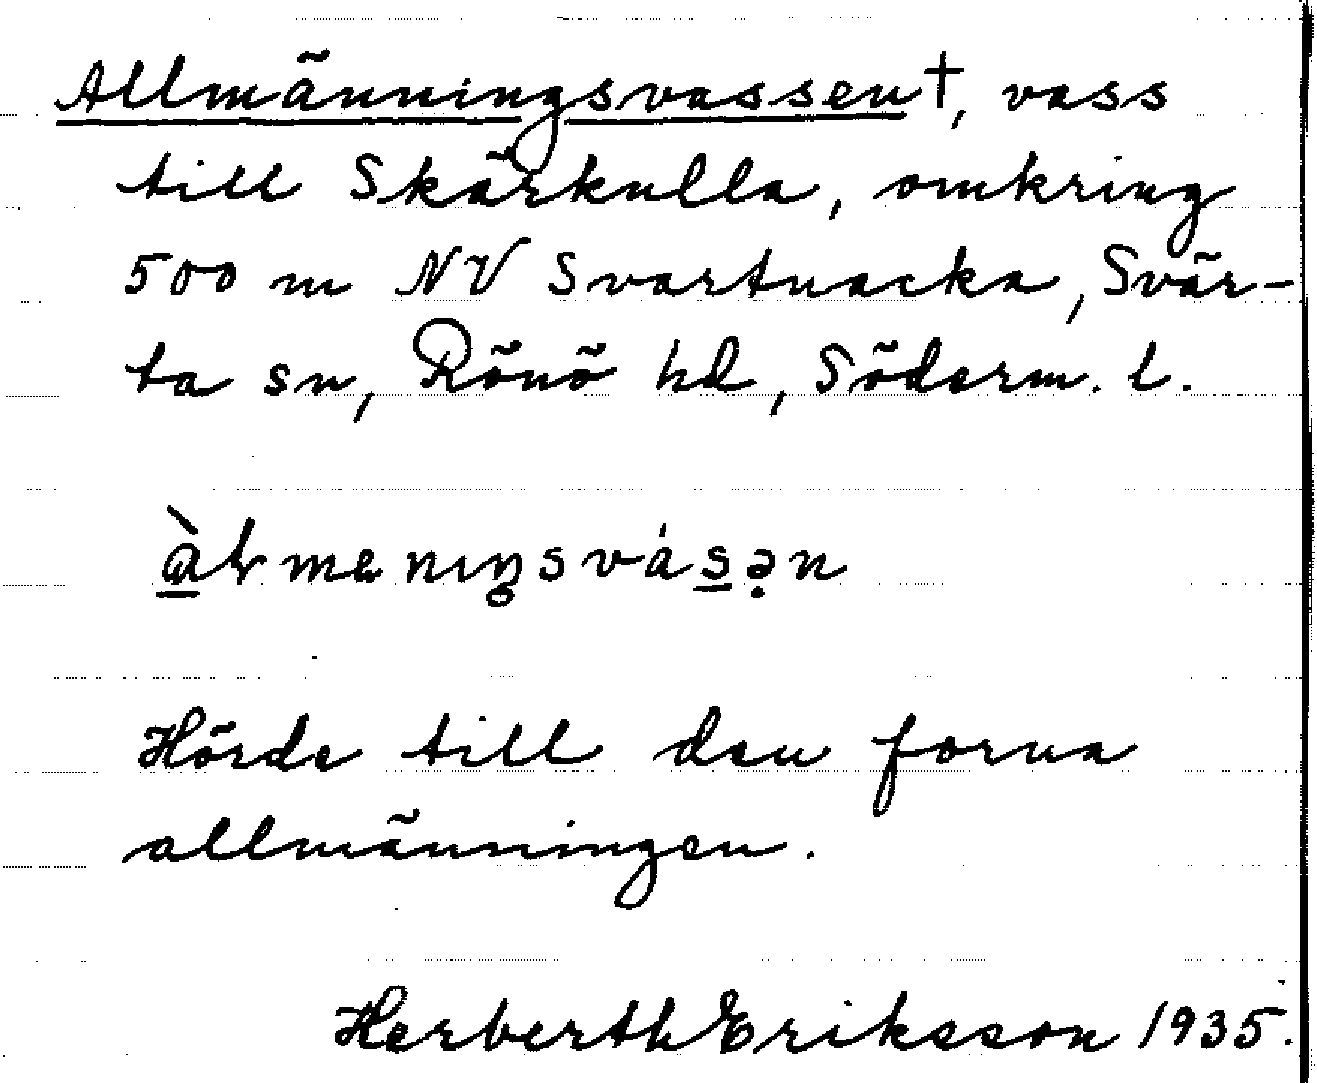 Allmänningsvassen†, vass
till Skärkulla, omkring
500 m NV Svartnacka, Svär-
ta sn, Rönö hd, Söderm. l.
Hörde till den forna
allmänningen.
Herberth Eriksson 1935.